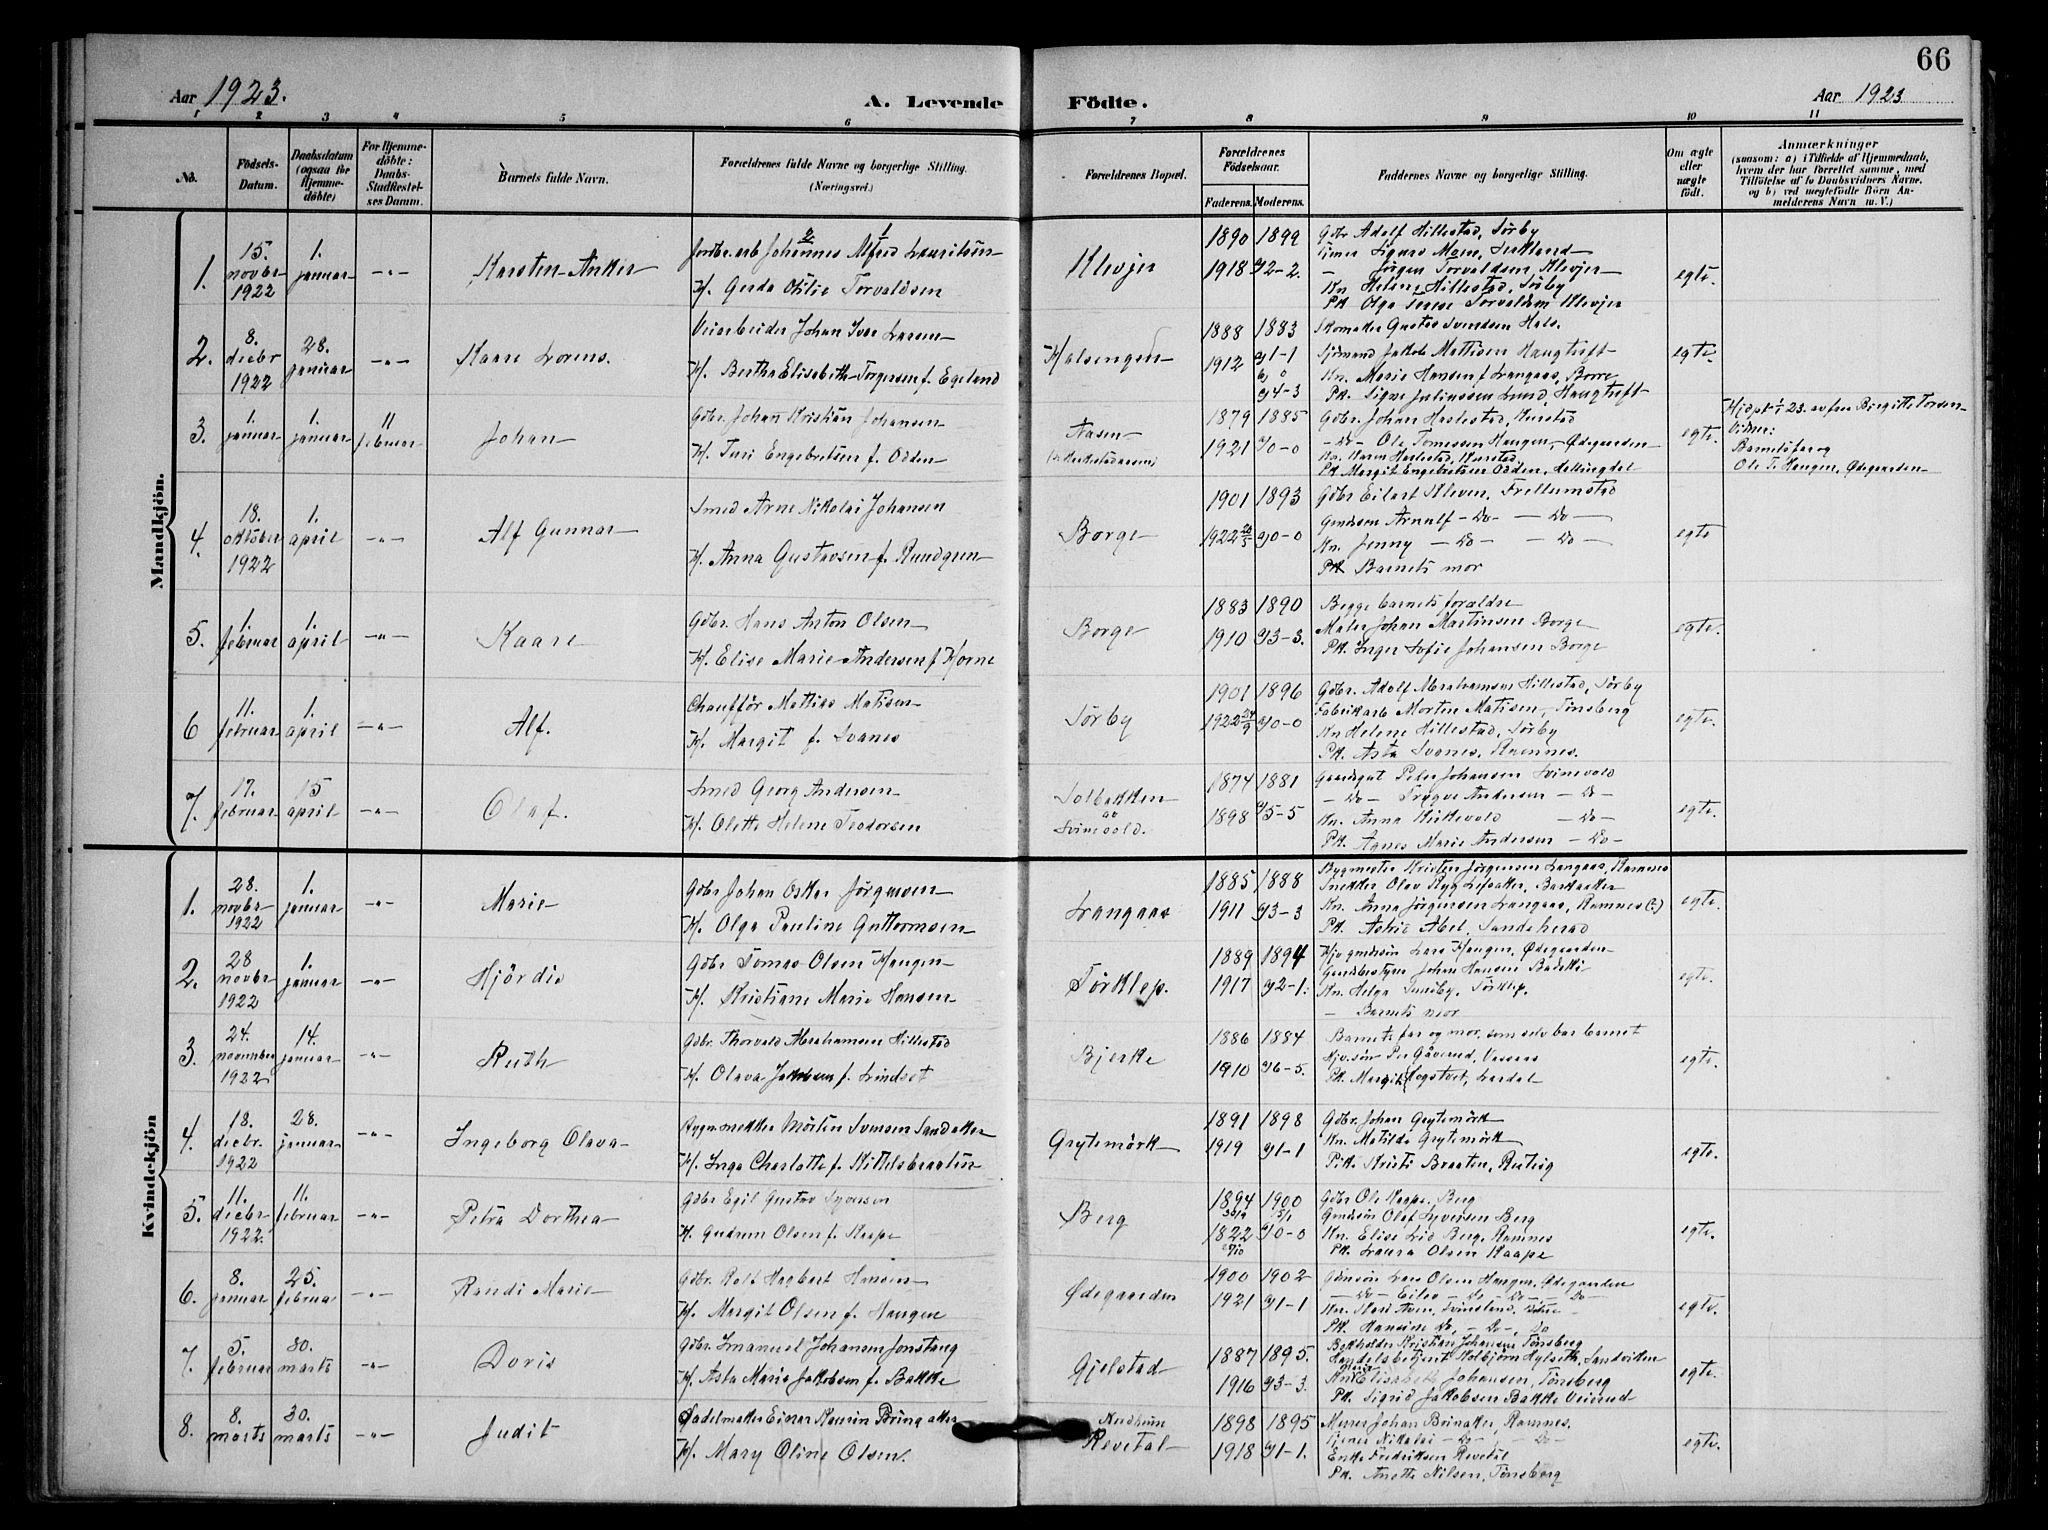 66
Aar 1923.
A. Levende Födte.
Aar 1923
1 2 3 4 5 6 7 8 9 10 11
No.
Födsels-Datum.
Daabsdatum (ogsaa for Hjemmedöbte)
For Hjemmedöbte: Daabs-Stadfestelses Datum.
Barnets fulde Navn.
Forældrenes fulde Navne og borgerlige Stilling.
(Næringsvei.)
Forældrenes Bopæl.
Forældrenes Födselsaar.
Faderens. Moderens.
Faddernes Navne og borgerlige Stilling.
Om ægte eller uægte födt.
Anmærkninger
(saasom: a) i Tilfælde af Hjemmedaab, hvem der har forrettet samme, med Tilföielse af to Daabsvidners Navne, og b) ved uægtefödte Börn Anmelderens Navn m. V.)
Mandkjön.
1. 15. novbr 1922
1. januar
-"-
Karsten Anker
Johannes Alfred Lauritsen
H. Gerda Otilie Torvaldsen
Klevjer
1890 1899
1918 g2-2.
Gdbr Adolf Hillestad, Sörby
Jörgen Torvaldsen, Klevjer
Kn Helene Hillestad, Sörby
Pk. Olga Torvaldsen Klevjer
egte.
2. 8. decbr 1922
28. januar
-"-
Kaare Lorens.
Veiarbeider Johan Iver Larsen
H. Bertha Elisabeth Torgersen f. Egeland
Halsengen
1888 1883
1912 g1-1
g4-3
Skomaker Gustav Svendsen Hals.
Sjömand Jakob Mattisen Haugtuft
Kn. Marie Hansen f. Langaas, Borre
Pk. Signe Juliussen Lund, Haugtuft
egte.
3. 1. januar
1. januar
11 februar
Johan
Gdbr. Johan Kristian Johansen
H. Turi Engebretsen f. Odden
Aasen
1879 1885
1921 g0-0
Gdbr. Johan Harlestad, Kirstad
-Do- Ole Tomessen Haugen, Ødegaarden
Kn. Karen Harlestad,
Pk. Margit Engebretsen Odden, Hallingdal
egte.
Hjdpt 1/1 23. av fru Birgitte Torsen
Vidner:
Barnets far og
Ole T. Haugen, Ødegaarden
4. 18. oktober 1922
1. april
-"-
Alf Gunnar
Smed Arne Nikolai Johansen
H. Anna Gustavsen f. Rundgren
Borge
1901 1893
1922 20/5 g0-0
Gdbr Eilert Kleven, Frellumstad
Gmdsön Arnulf -Do- -Do-
Kn. Jenny -Do- -Do-
Pk Barnets mor
egte
5. 1. februar
1. april
-"-
Kaare
Gdbr. Hans Anton Olsen
H. Elise Marie Andersen f. Horne
Borge
1883 1890
1910 g3-3.
Begge barnets forældre
Maler Johan Martinsen Borge
Pk. Inger Sofie Johansen Borge
egte.
6 11. februar
1. april
-"-
Alf.
Chaufför Mattias Matisen
H. Margit f. Svanes
Sörby
1901 1896
1922 24/9 g0-0
Gdbr. Adolf Abrahamsen Hillestad, Sörby
Fabrikarb Morten Matisen, Tönsberg
Kn Helene Hillestad, Sörby
Pk. Asta Svanes, Ramnes.
egte.
7. 17. februar
15 april
-"-
Olaf.
Smed Georg Andersen
H. Olette Helene Teodorsen
Solbakken
av
Svinevold.
1874 1881
1898 g5-5
Gaardsgut Peter Johansen Svinevold
-Do- Trygve Andersen -Do-
Kn. Anna Kirkevold -Do-
Pk. Agnes Marie Andersen -Do-
egte.
Kvindekjön
1. 28. novbr 1922
1. januar
-"-
Marie
Gdbr Johan Oskar Jörgensen
H. Olga Pauline Guttormsen
Langaas
1885 1888
1911 g3-3
Bygmester Kristen Jörgensen Langaas, Ramnes
Snekker Olav Ryg Lefsaker, Barkaaker
Kn. Anna Jörgensen Langaas, Ramnes
Pk. Astrid Abel, Sandeherad
egte.
2. 28 novbr 1922
1. januar
-"-
Hjördis
Gdbr Tomas Olsen Haugen
H. Kristiane Marie Hansen
Törklep.
1889 1894
1917 g2-1.
Hjv gmdsön Lars Haugen, Ødegaarden
Gaardbestyrer Johan Hansen
Kn. Helga Sundby, Törklep.
- Barnets mor
egte.
3. 24. november 1922
14. januar
-"-
Ruth
Gdbr. Thorvald Abrahamsen Hillestad
H. Olava Jakobsen f. Lindset
Bjerke
1886 1884
1910 g6-5.
Barnets far og mor, som selv bar barnet
Hjv. sön Per Gåserud, Vassaas
Pk. Margit Hogstvet, Lardal
egte.
4. 18. decbr. 1922
28. januar
-"-
Ingeborg Olava
Bygnsnekker Morten Svensen Sandaker
H. Inga Charlotte f. Kittelsbraaten
Grytemörk
1891 1898
1919 g1-1
Gdbr. Johan Grytemörk
Kn. Matilda Grytemörk
Pike Kristi Braaten,
egte.
5. 11. decbr 1922.
11. februar
-"-
Petra Dorthea
Gdbr Egil Gustav Syversen
H. Gudrun Olsen f. Kaape
Berg
1894 1900
1822 g0-0
Gdbr Ole Kaape, Berg
Gmdsön Olaf Syversen Berg
Kn. Elise Lid Berg, Ramnes
Pk. Laura Olsen Kaape
egte.
6. 8. januar
25. februar
-"-
Randi Marie
Gdbr. Rolf Hagbart Hansen
H. Margit Olsen f. Haugen
Ødegaarden
1900 1902
1921 g1-1
Gdmsön Lars Olsen Haugen, Ødegaarden
-Do- Eilev -Do- -Do-
Pk. Hansine Do, -Do-
egte.
7. 5. februar
30. marts
-"-
Doris
Gdbr. Emanuel Johansen Jonstang
H. Asta Marie Jakobsen f. Bakke
Gjelstad
1887 1895.
1916 g3-3.
Bokholder Kristian Johansen Tönsberg
Handelsbetjent Kolbjörn Hylseth, Sandviken
Kn Elisabeth Johansen, Tönsberg
Pk. Sigrid Jakobsen Bakke Veierud
egte.
8. 8. marts
30. marts
-"-
Judit
Sadelmaker Einar Kaurin Bringaker
H. Mary Oline Olsen.
Revetal
1898 1895
1918 g1-1.
Murer Johan Brinaker, Ramnes.
Tjener Nikolai -Do- -Do-
Enke Fredriksen Revetal
Pk. Anette Nilsen, Tönsberg
egte.